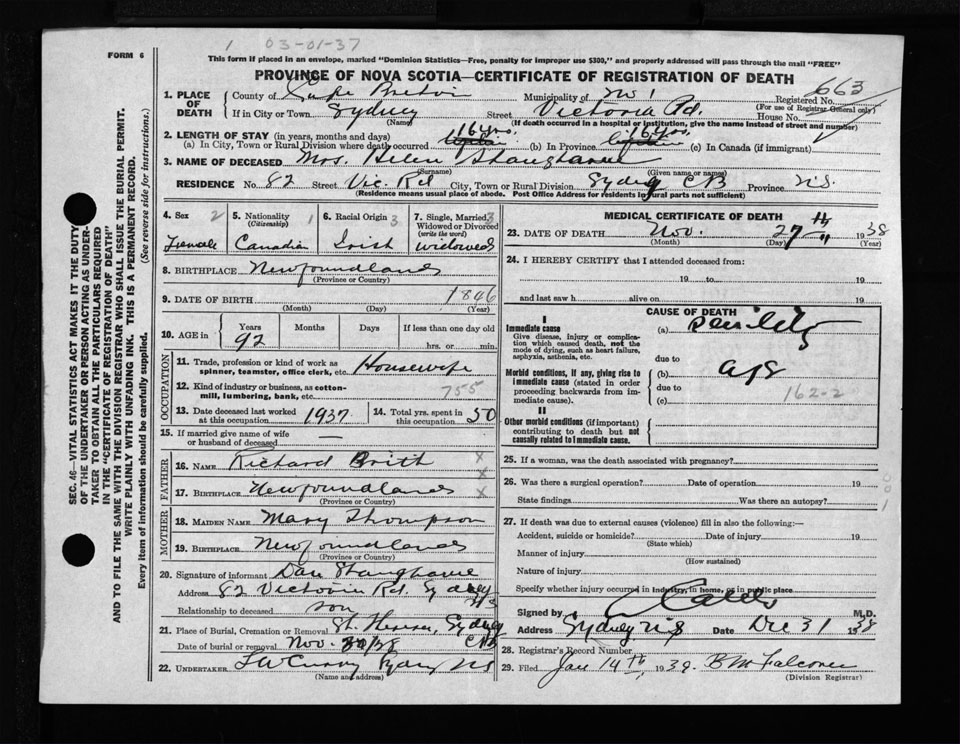 1 03-01-37
FORM 6
This form if placed in an envelope, marked "Dominion Statistics—Free, penalty for improper use $300," and properly addressed will pass through the mail "FREE"
PROVINCE OF NOVA SCOTIA—CERTIFICATE OF REGISTRATION OF DEATH
SEC. 46—VITAL STATISTICS ACT MAKES IT THE DUTY
OF THE UNDERTAKER OR PERSON ACTING AS UNDER-
TAKER TO OBTAIN ALL THE PARTICULARS REQUIRED
IN THE "CERTIFICATE OF REGISTRATION OF DEATH"
AND TO FILE THE SAME WITH THE DIVISION REGISTRAR WHO SHALL ISSUE THE BURIAL PERMIT.
WRITE PLAINLY WITH UNFADING INK. THIS IS A PERMANENT RECORD.
Every item of information should be carefully supplied. (See reverse side for instructions.)
1. PLACE OF DEATH County of Cape Breton Municipality of No 1 Registered No. 663
(For use of Registrar General only)
If in City or Town Sydney Street Victoria Rd. House No.
(Name) (If death occurred in a hospital or institution, give the name instead of street and number)
2. LENGTH OF STAY (in years, months and days) 16 yrs. 16 yrs.
(a) In City, Town or Rural Division where death occurred (b) In Province lifetime (c) In Canada (if immigrant)
3. NAME OF DECEASED Mrs. Helen
(Surname) (Given name or names)
RESIDENCE No. 82 Street Vic. Rd City, Town or Rural Division Sydney CB Province N.S.
(Residence means usual place of abode. Post Office Address for residents in rural parts not sufficient)
4. Sex 2 Female
5. Nationality 1 (Citizenship) Canadian
6. Racial Origin 3 Irish
7. Single, Married, 3 Widowed or Divorced (write the word) widowed
8. BIRTHPLACE Newfoundland
(Province or Country)
9. DATE OF BIRTH 1846
(Month) (Day) (Year)
10. AGE in Years Months Days If less than one day
92 hrs. or min.
OCCUPATION
11. Trade, profession or kind of work as spinner, teamster, office clerk, etc. Housewife
12. Kind of industry or business, as cotton-mill, lumbering, bank, etc. 755
13. Date deceased last worked at this occupation 1937 14. Total yrs. spent in this occupation 50
15. If married give name of wife or husband of deceased —
FATHER
16. NAME Richard Brith x
17. BIRTHPLACE Newfoundland x
(Province or Country)
MOTHER
18. MAIDEN NAME Mary Thompson
19. BIRTHPLACE Newfoundland
(Province or Country)
20. Signature of informant Dan
Address 82 Victoria Rd. Sydney N.S
Relationship to deceased son
21. Place of Burial, Cremation or Removal St. Sydney
Date of burial or removal Nov. 30/38 CB
22. UNDERTAKER Sydney NS
(Name and address)
MEDICAL CERTIFICATE OF DEATH
23. DATE OF DEATH Nov. 27th 1938
(Month) (Day) (Year)
24. I HEREBY CERTIFY that I attended deceased from:
19 to 19
and last saw h alive on 19
CAUSE OF DEATH
I
Immediate cause (a) Senility
Give disease, injury or complication which caused death, not the mode of dying, such as heart failure, asphyxia, asthenia, etc.
due to
Morbid conditions, if any, giving rise to immediate cause (stated in order proceeding backwards from immediate cause).
(b) age
due to 162-2
(c)
II
Other morbid conditions (if important) contributing to death but not causally related to immediate cause.
25. If a woman, was the death associated with pregnancy?
26. Was there a surgical operation? Date of operation 19
State findings Was there an autopsy?
001
27. If death was due to external causes (violence) fill in also the following:—
Accident, suicide or homicide? Date of injury 19
(State which)
Manner of injury
(How sustained)
Nature of injury
Specify whether injury occurred in industry, in home, or in public place
Signed by M.D.
Address Sydney NS Date Dec 31 1938
28. Registrar's Record Number
29. Filed Jan 14th, 1939. B M Falconer
(Division Registrar)